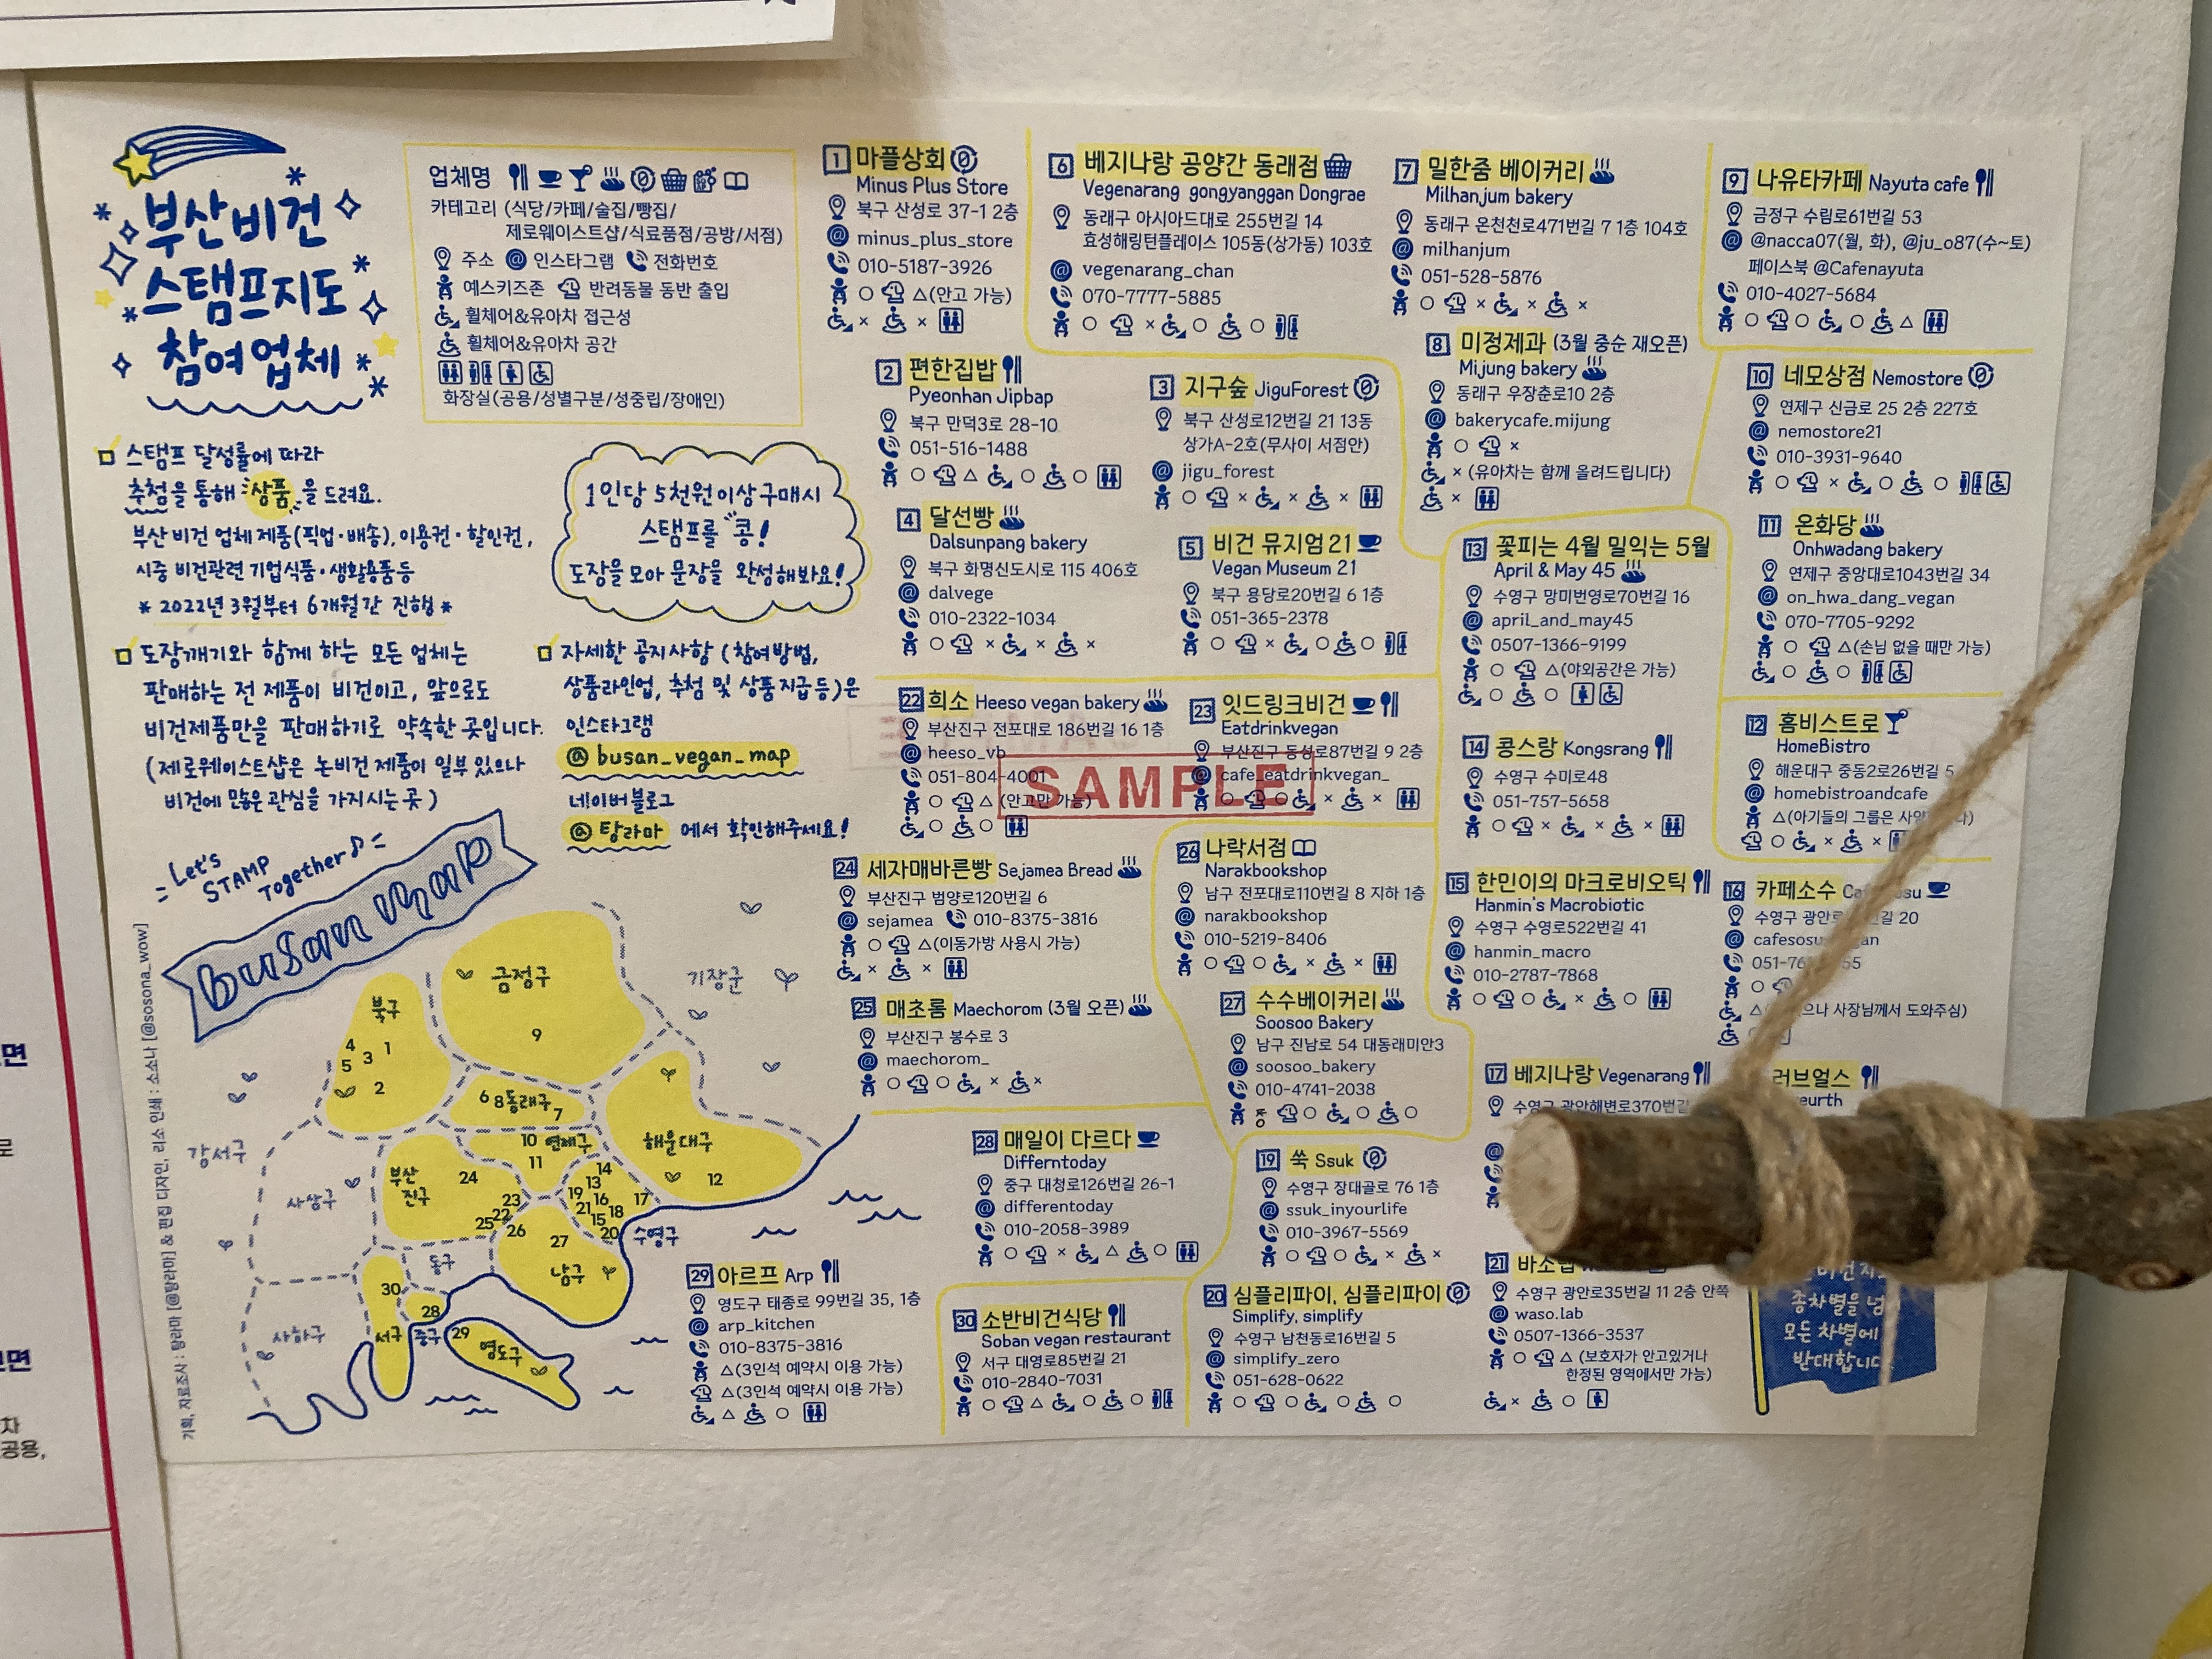 부산비건
스탬프지도
참여업체
업체명
카테고리 (식당/카페/술집/빵집/
제로웨이스트샵/식료품점/공방/서점)
주소 @ 인스타그램 전화번호
예스키즈존 반려동물 동반 출입
휠체어&유아차 접근성
휠체어&유아차 공간
화장실(공용/성별구분/성중립/장애인)
스탬프 달성률에 따라
추첨을 통해 상품을 드려요.
부산 비건 업체 제품(픽업·배송), 이용권·할인권,
시중 비건관련 기업식품·생활용품등
* 2022년 3월부터 6개월간 진행 *
1인당 5천원이상 구매시
스탬프를 "콩!
도장을 모아 문장을 완성해봐요!
도장깨기와 함께 하는 모든 업체는
판매하는 전 제품이 비건이고, 앞으로도
비건제품만을 판매하기로 약속한 곳입니다.
(제로웨이스트샵은 논비건 제품이 일부 있으나
비건에 많은 관심을 가지시는 곳)
자세한 공지사항 (참여방법,
상품라인업, 추첨 및 상품지급 등)은
인스타그램
@ busan_vegan_map
네이버 블로그
@ 탕라마 에서 확인해주세요!
Let's
STAMP
Together
busan map
금정구
9
북구
4 3 1
5
2
기장군
6 8 동래구 7
10 연제구
11
해운대구
12
강서구
사상구
부산
진구
24
23
22
25
26
14
13
19 16 17
21 18
15
20
수영구
27
남구
동구
30
28
서구
중구
29
영도구
사하구
기획, 자료조사 : 탕라마 [@탕라마] & 편집 디자인, 리소 인쇄 : 소소나 [@sosona_wow]
1 마플상회
Minus Plus Store
북구 산성로 37-1 2층
@ minus_plus_store
010-5187-3926
○ △(안고 가능)
× ×
2 편한집밥
Pyeonhan Jipbap
북구 만덕3로 28-10
051-516-1488
○ △ ○ ○
3 지구숲 JiguForest
북구 산성로12번길 21 13동
상가A-2호(무사이 서점안)
@ jigu_forest
○ × × ×
4 달선빵
Dalsunpang bakery
북구 화명신도시로 115 406호
@ dalvege
010-2322-1034
○ × × ×
5 비건 뮤지엄 21
Vegan Museum 21
북구 용당로20번길 6 1층
051-365-2378
○ × ○ ○
6 베지나랑 공양간 동래점
Vegenarang gongyanggan Dongrae
동래구 아시아드대로 255번길 14
효성해링턴플레이스 105동(상가동) 103호
@ vegenarang_chan
070-7777-5885
○ × ○ ○
7 밀한줌 베이커리
Milhanjum bakery
동래구 온천천로471번길 7 1층 104호
@ milhanjum
051-528-5876
○ × × ×
8 미정제과 (3월 중순 재오픈)
Mijung bakery
동래구 우장춘로10 2층
@ bakerycafe.mijung
○ ×
× (유아차는 함께 올려드립니다)
×
9 나유타카페 Nayuta cafe
금정구 수림로61번길 53
@ @nacca07(월, 화), @ju_o87(수~토)
페이스북 @Cafenayuta
010-4027-5684
○ ○ ○ △
10 네모상점 Nemostore
연제구 신금로 25 2층 227호
@ nemostore21
010-3931-9640
○ × ○ ○
11 온화당
Onhwadang bakery
연제구 중앙대로1043번길 34
@ on_hwa_dang_vegan
070-7705-9292
○ △(손님 없을 때만 가능)
○ ○
12 홈비스트로
HomeBistro
해운대구 중동2로26번길 5
@ homebistroandcafe
△(아기들의 그룹은
○ × ×
13 꽃피는 4월 밀익는 5월
April & May 45
수영구 망미번영로70번길 16
@ april_and_may45
0507-1366-9199
○ △(야외공간은 가능)
○ ○
14 콩스랑 Kongsrang
수영구 수미로48
051-757-5658
○ × × ×
15 한민이의 마크로비오틱
Hanmin's Macrobiotic
수영구 수영로522번길 41
@ hanmin_macro
010-2787-7868
○ ○ × ○
16 카페소수
수영구 20
@
○
사장님께서 도와주심)
17 베지나랑 Vegenarang
수영구 광안해변로370번길
러브얼스
19 쑥 Ssuk
수영구 장대골로 76 1층
@ ssuk_inyourlife
010-3967-5569
○ ○ × ×
20 심플리파이, 심플리파이
Simplify, simplify
수영구 남천동로16번길 5
@ simplify_zero
051-628-0622
○ ○ ○ ○
21
수영구 광안로35번길 11 2층 안쪽
@ waso.lab
0507-1366-3537
○ △ (보호자가 안고있거나
한정된 영역에서만 가능)
× ○
22 희소 Heeso vegan bakery
부산진구 전포대로 186번길 16 1층
@ heeso_vb
051-804-4001
○ △ (안고만 가능)
○ ○
23 잇드링크비건
Eatdrinkvegan
부산진구 동성로87번길 9 2층
@ cafe_eatdrinkvegan_
○ ○ × ×
SAMPLE
24 세자매바른빵 Sejamea Bread
부산진구 범양로120번길 6
@ sejamea 010-8375-3816
○ △(이동가방 사용시 가능)
× ×
25 매초롬 Maechorom (3월 오픈)
부산진구 봉수로 3
@ maechorom_
○ ○ × ×
26 나락서점
Narakbookshop
남구 전포대로110번길 8 지하 1층
@ narakbookshop
010-5219-8406
○ ○ × ×
27 수수베이커리
Soosoo Bakery
남구 진남로 54 대동래미안3
@ soosoo_bakery
010-4741-2038
○ ○ ○
28 매일이 다르다
Differntoday
중구 대청로126번길 26-1
@ differentoday
010-2058-3989
○ × △ ○
29 아르프 Arp
영도구 태종로 99번길 35, 1층
@ arp_kitchen
010-8375-3816
△(3인석 예약시 이용 가능)
△(3인석 예약시 이용 가능)
△ ○
30 소반비건식당
Soban vegan restaurant
서구 대영로85번길 21
010-2840-7031
○ △ ○ ○
종차별을
모든 차별에
반대합니다